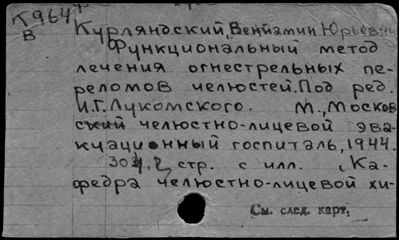 К964
В
Курляндский, Вениамин Юрьевич
Функциональный метод
лечения огнестрельных пе-
реломов челюстей. Под ред.
И.Г. Лукомского. М., Москов
ский челюстно-лицевой эва-
куационный госпиталь, 1944.
304,2 стр. с илл. (Ка-
федра челюстно-лицевой хи-
См. след. карт.